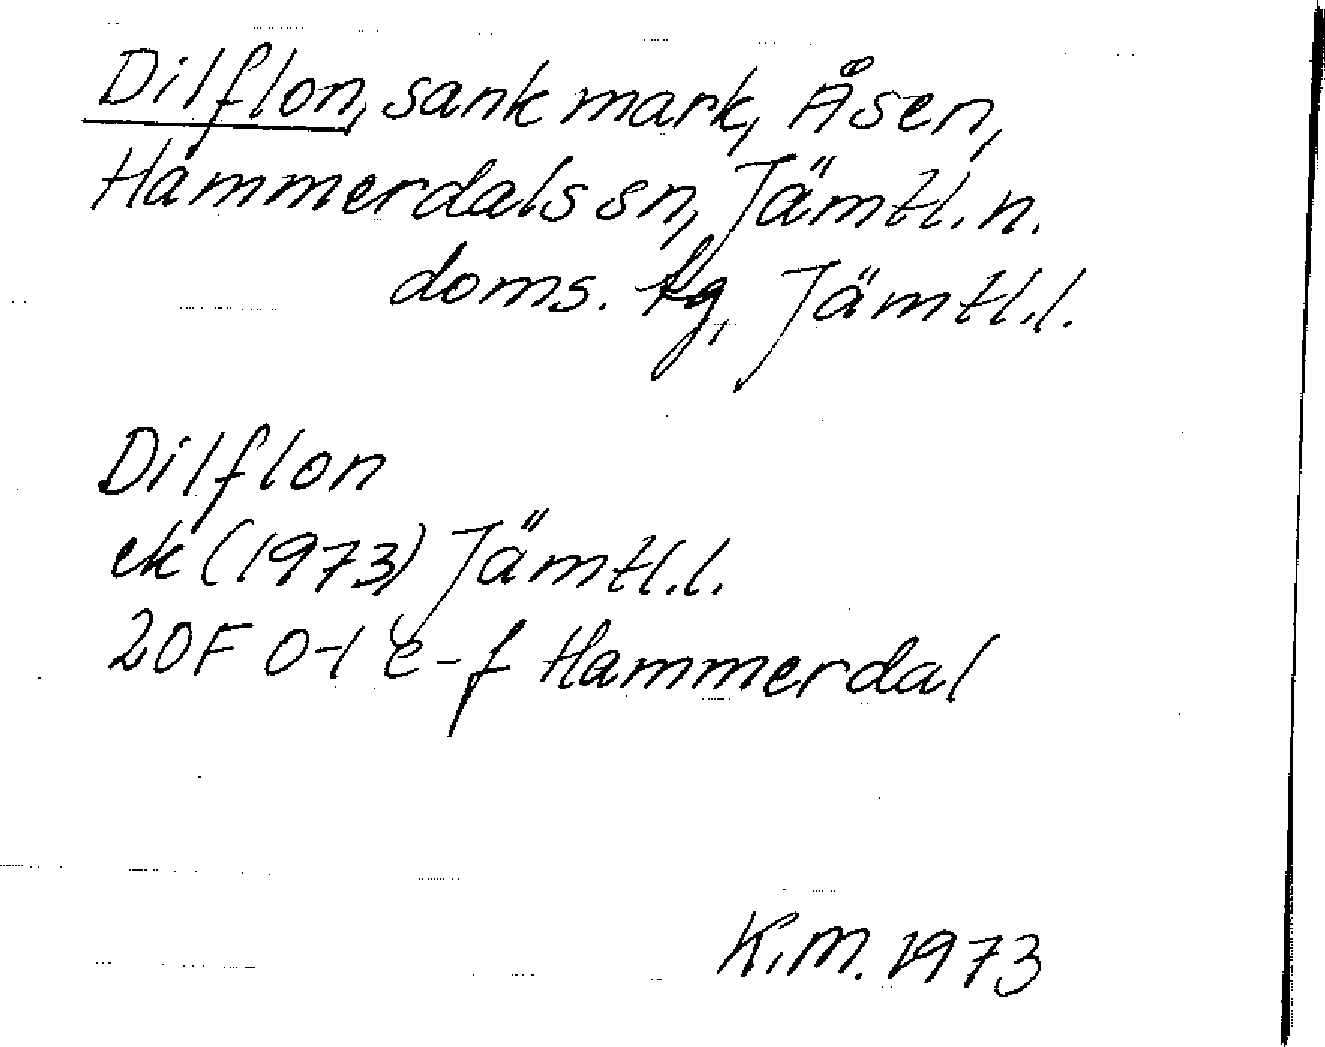 Dilflon, sank mark, Åsen,
Hammerdals sn, Jämtl. n.
doms. tg, Jämtl. l.
Dilflon
ek (1973) Jämtl. l.
20F 0-1 e-f Hammerdal
K. M. 1973